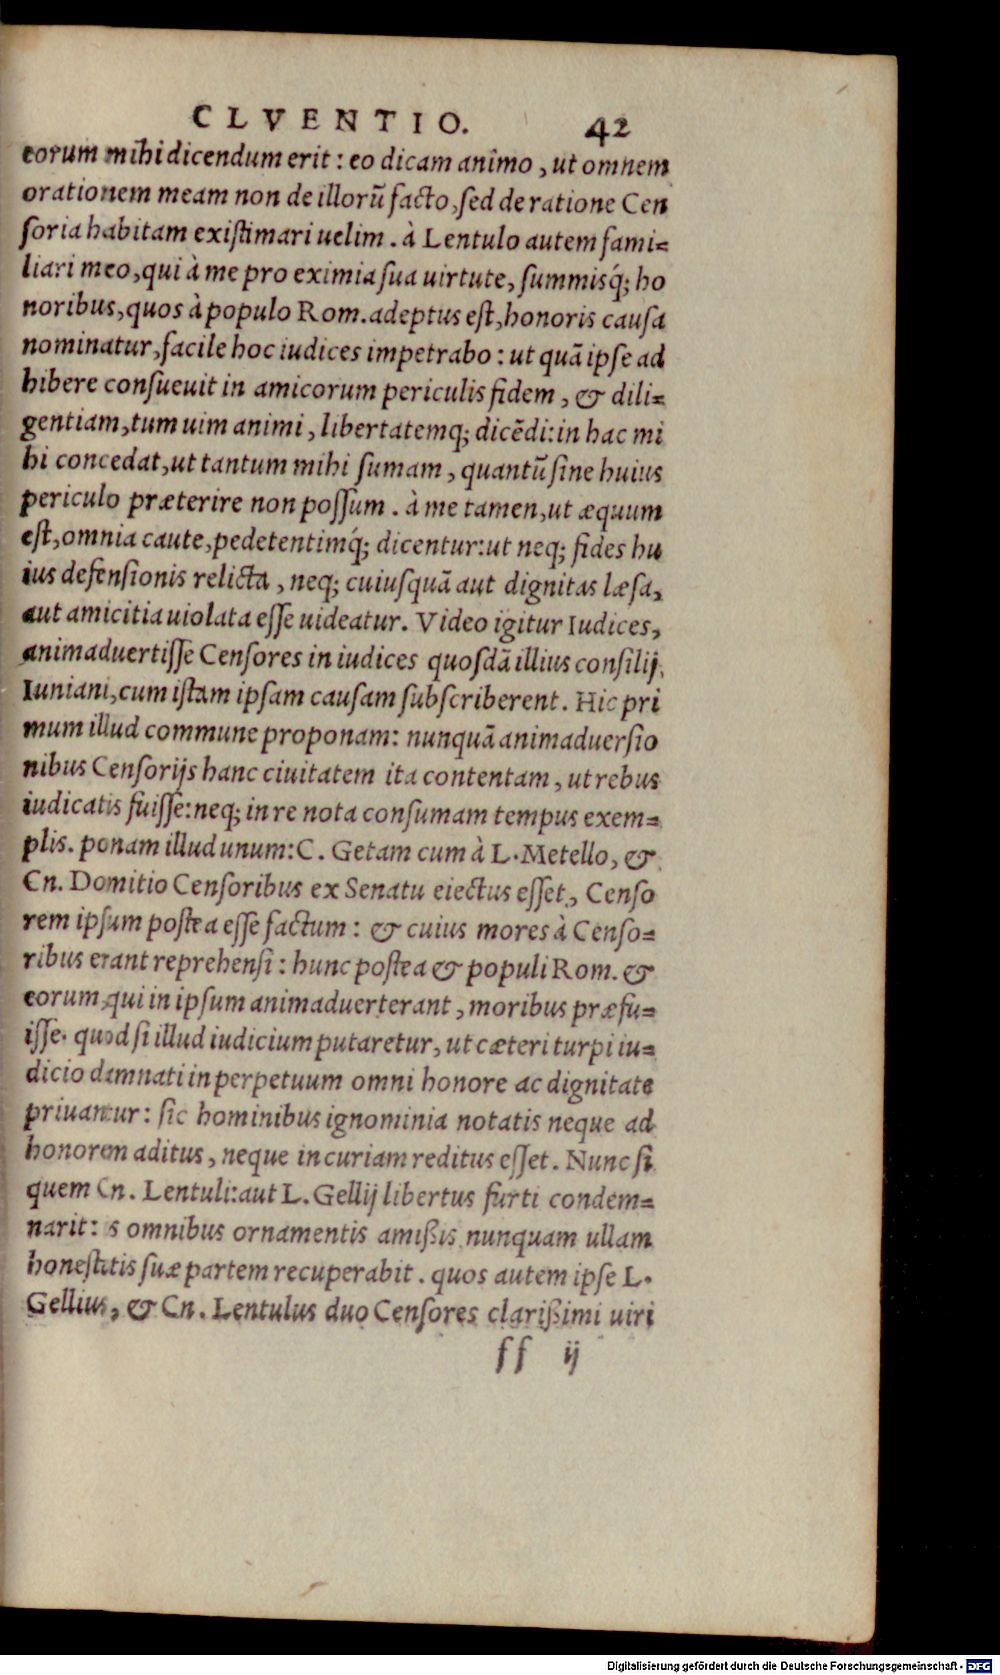 CLVENTIO. 42
eorum mihi dicendum erit : eo dicam animo , ut omnem
orationem meam non de illorū facto, sed de ratione Cen
soria habitam existimari uelim . à Lentulo autem fami=
liari meo, qui à me pro eximia sua uirtute, summisq́; ho
noribus, quos à populo Rom. adeptus est, honoris causa
nominatur, facile hoc iudices impetrabo : ut quā ipse ad
hibere consueuit in amicorum periculis fidem , & dili=
gentiam, tum uim animi , libertatemq; dicēdi: in hac mi
hi concedat, ut tantum mihi sumam , quantū sine huius
periculo præterire non possum . à me tamen, ut æquum
est, omnia caute, pedetentimq́; dicentur: ut neq; fides hu
ius defensionis relicta , neq; cuiusquā aut dignitas læsa,
aut amicitia uiolata esse uideatur. Video igitur Iudices,
animaduertisse Censores in iudices quosdā illius consilij
Iuniani, cum istam ipsam causam subscriberent . Hic pri
mum illud commune proponam: nunquā animaduersio
nibus Censorijs hanc ciuitatem ita contentam , ut rebus
iudicatis fuisse: neq; in re nota consumam tempus exem=
plis. ponam illud unum: C. Getam cum à L. Metello, &
Cn. Domitio Censoribus ex Senatu eiectus esset , Censo
rem ipsum postea esse factum : & cuius mores à Censo=
ribus erant reprehensi : hunc postea & populi Rom. &
eorum, qui in ipsum animaduerterant , moribus præfu=
isse. quod si illud iudicium putaretur, ut cæteri turpi iu=
dicio damnati in perpetuum omni honore ac dignitate
priuantur : sic hominibus ignominia notatis neque ad
honorem aditus , neque in curiam reditus esset . Nunc si
quem Cn. Lentuli: aut L. Gellij libertus furti condem=
narit: is omnibus ornamentis amißis nunquam ullam
honestatis suæ partem recuperabit . quos autem ipse L.
Gellius, & Cn. Lentulus duo Censores clarißimi uiri
ff ij
Digitalisierung gefördert durch die Deutsche Forschungsgemeinschaft - DFG